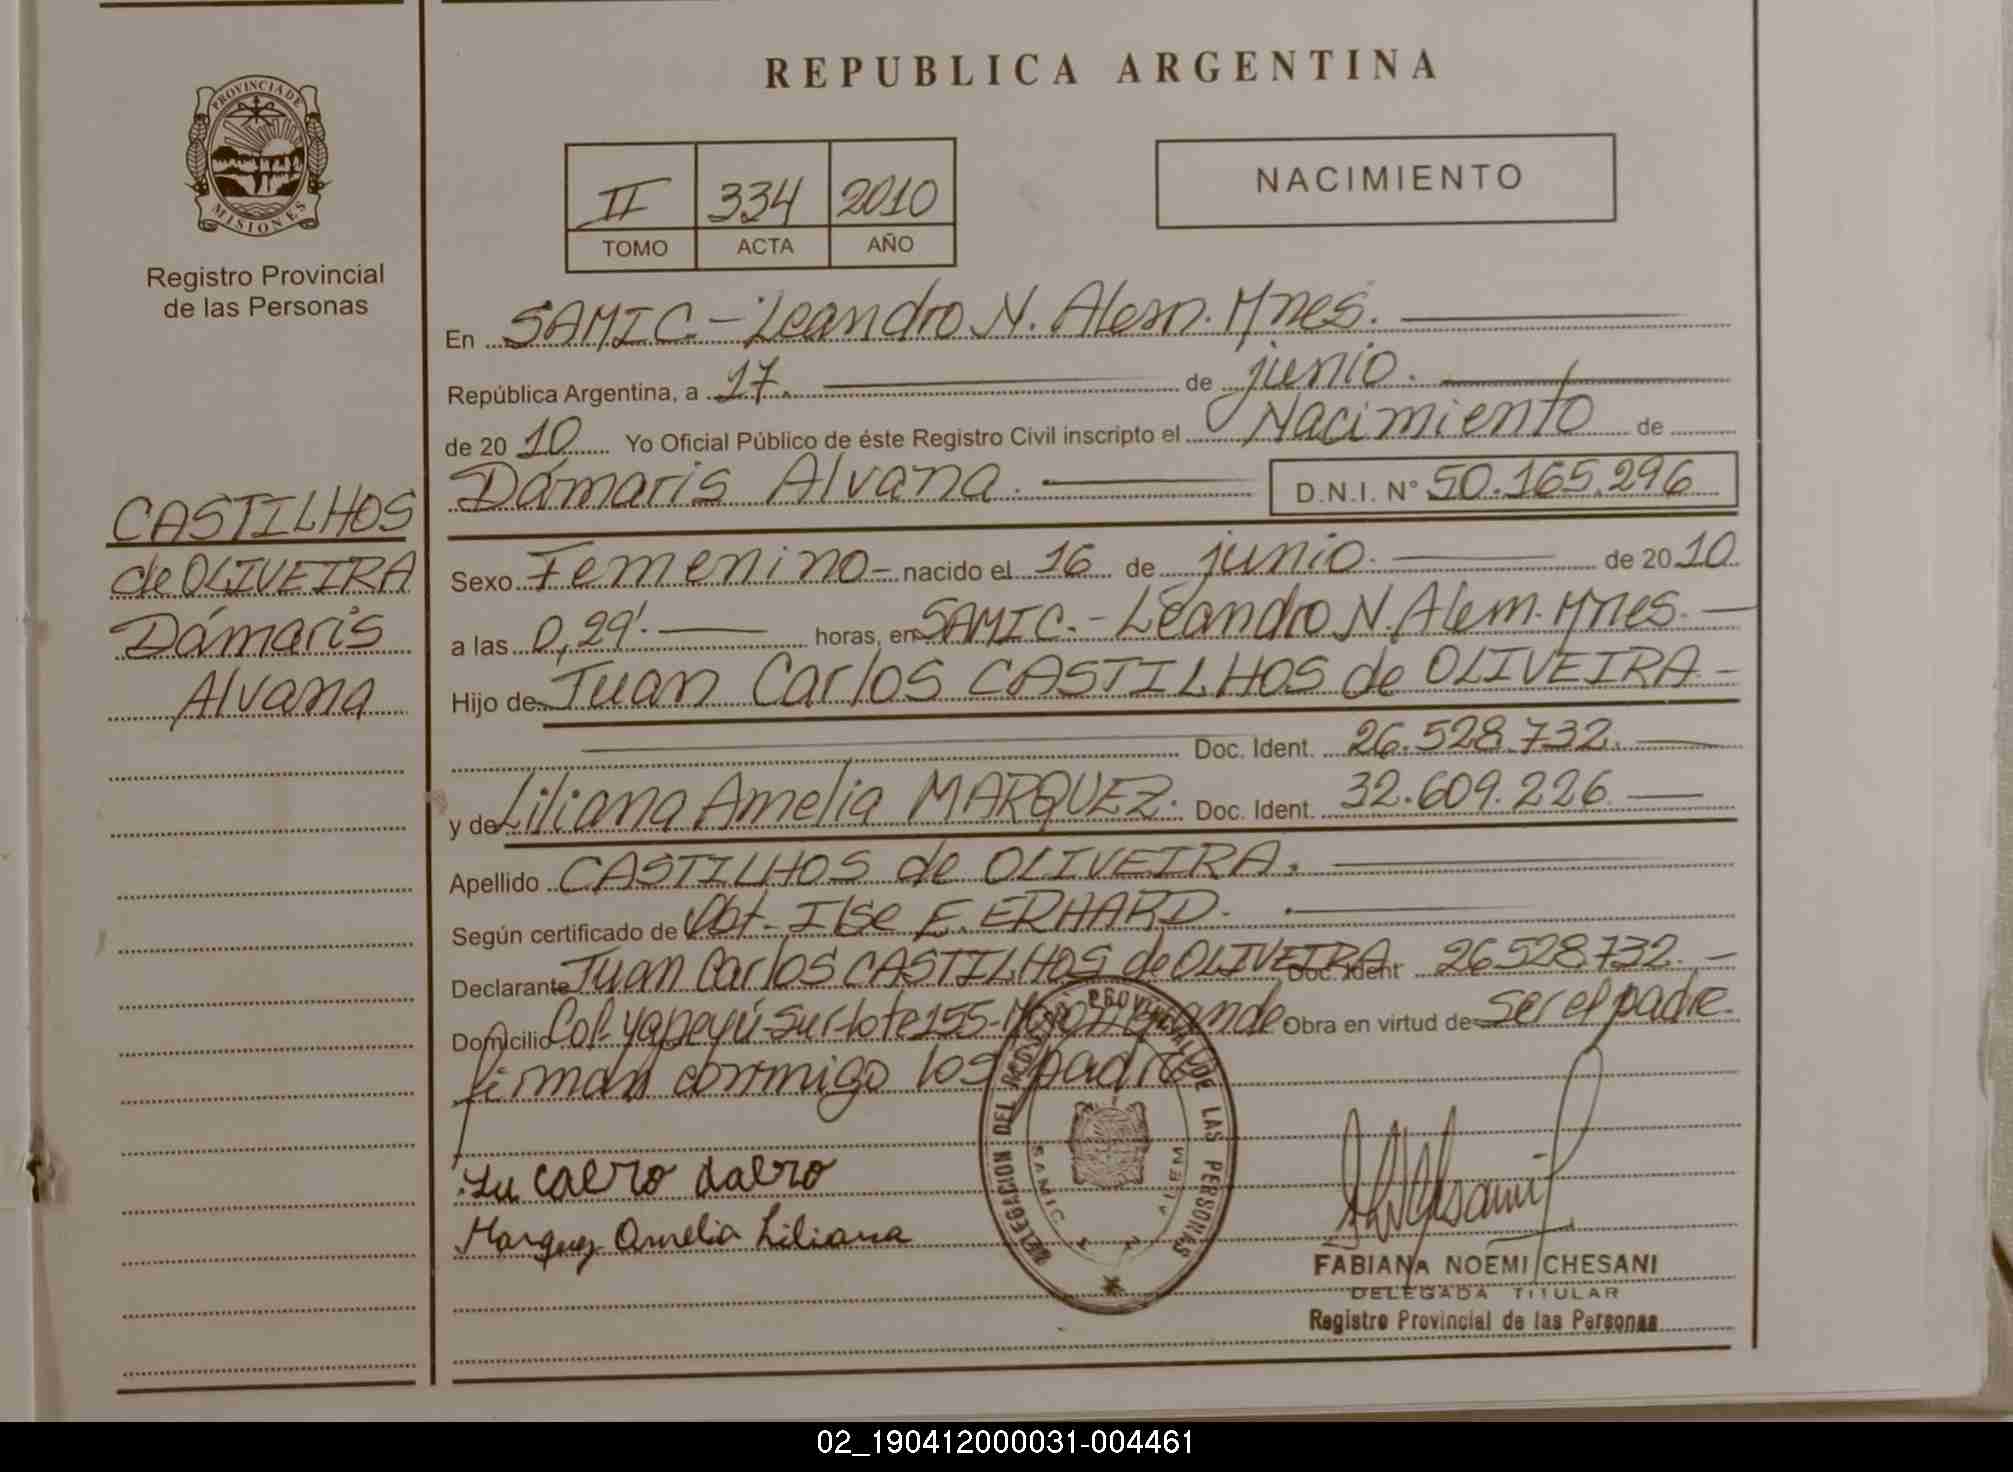 REPUBLICA ARGENTINA
PROVINCIA DE
MISIONES
Registro Provincial
de las Personas
II 334 2010
TOMO ACTA AÑO
NACIMIENTO
En SAMIC.- Leandro N. Alem. Mnes.
República Argentina, a 17. de junio.
de 20 10 Yo Oficial Público de éste Registro Civil inscripto el Nacimiento de
Dámaris Alvana. D.N.I. N° 50.165.296
CASTILHOS
de OLIVEIRA
Dámaris
Alvana
Sexo Femenino- nacido el 16 de junio. de 20 10.
a las 0,29'. horas, en SAMIC.- Leandro N. Alem. Mnes.
Hijo de Juan Carlos CASTILHOS de OLIVEIRA-
Doc. Ident. 26.528.732.
y de Liliana Amelia MARQUEZ. Doc. Ident. 32.609.226
Apellido CASTILHOS de OLIVEIRA.
Según certificado de Obt. Ilse E. ERHARD.
Declarante Juan Carlos CASTILHOS de OLIVEIRA Doc. Ident 26528.732.-
Domicilio Col. Yapeyú-Sur-lote 155- Obra en virtud de ser el padre.
firman conmigo los padres
DELEGACION DEL REGISTRO PROVINCIAL DE LAS PERSONAS
SAMIC ALEM
Marquez Amelia Liliana
FABIANA NOEMI CHESANI
DELEGADA TITULAR
Registro Provincial de las Personas
02_190412000031-004461